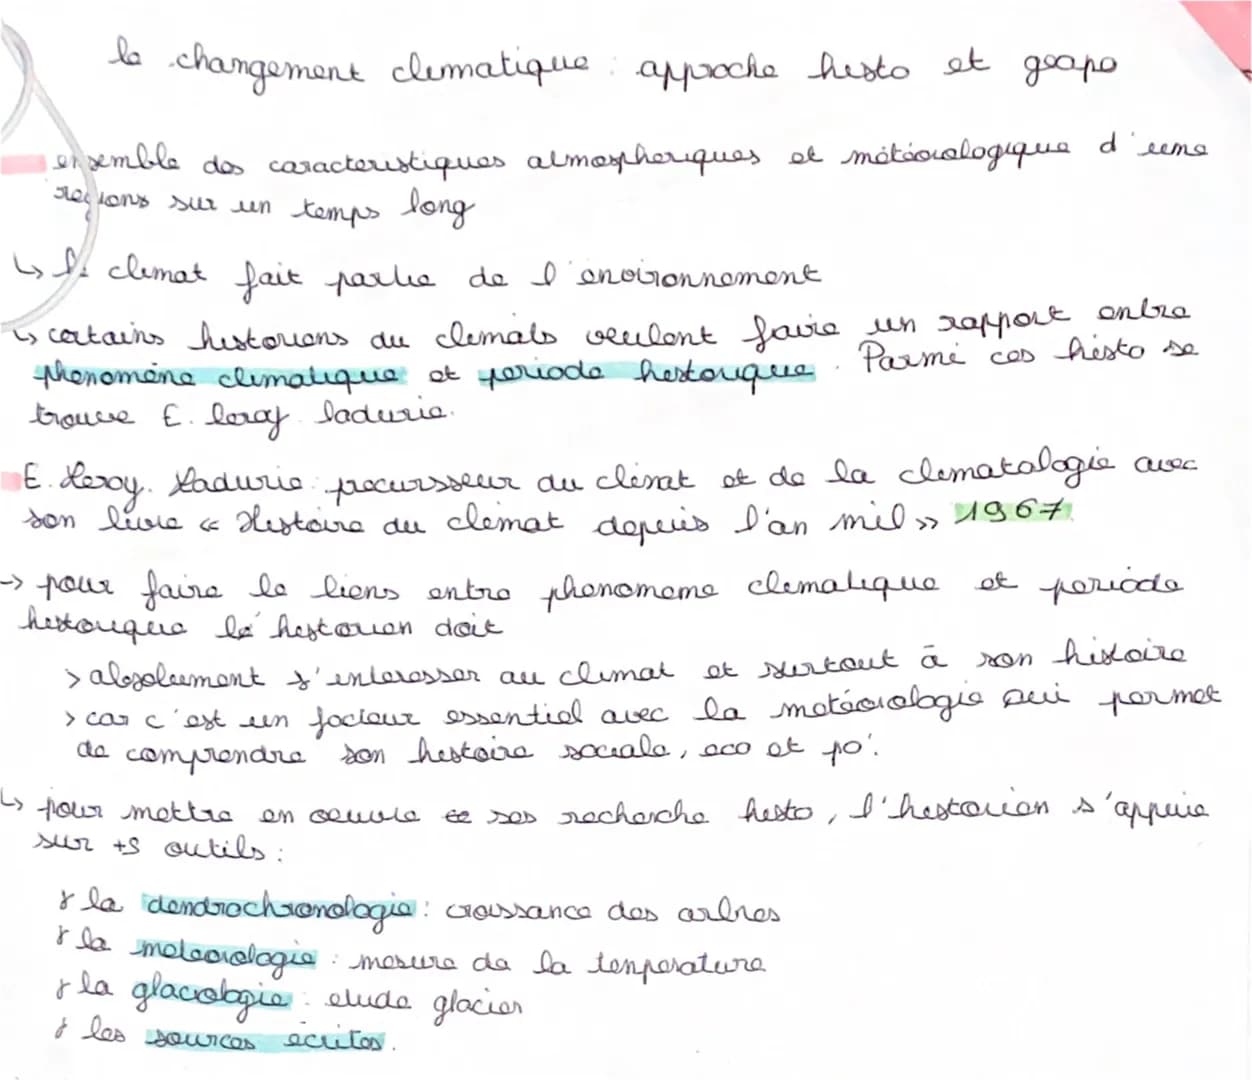 le changement climatique : approche histo et géopo
ensemble des caracteristiques atmospheriques et météorologique d'une
regions sur un temps long
↳ le climat fait partie de l'environnement
↳ certains historiens du climats veulent faire un rapport entre
phenomène climatique et periode historique. Parmi ces histo se
trouve E. leroy ladurie.
E. Leroy. Ladurie : precursseur du climat et de la climatologie avec
son livre « Histoire du climat depuis l'an mil » 1967
→ pour faire le liens entre phenomene climatique et periode
historique le historien doit
> absolument s'interesser au climat et surtout à son histoire
> car c'est un facteur essentiel avec la météorologie qui permet
de comprendre son histoire sociale, eco et po.
↳ pour mettre en oeuvre ses recherche histo, l'historien s'appuie
sur +s outils :
la dendrochronologie : croissance des arbres
la meteorologie : mesure de la temperature
la glaciologie : etude glacier
les sources écrites.